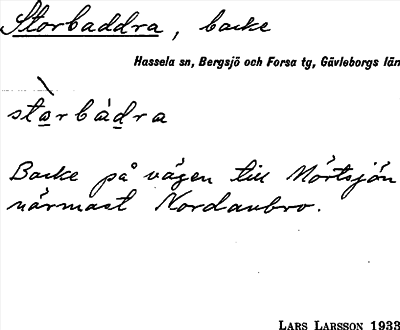 Storbaddra, backe
Hassela sn, Bergsjö och Forsa tg, Gävleborgs län
stòrbàdra
Backe på vägen till Mörtsjön
närmast Nordanbro.
LARS LARSSON 1933